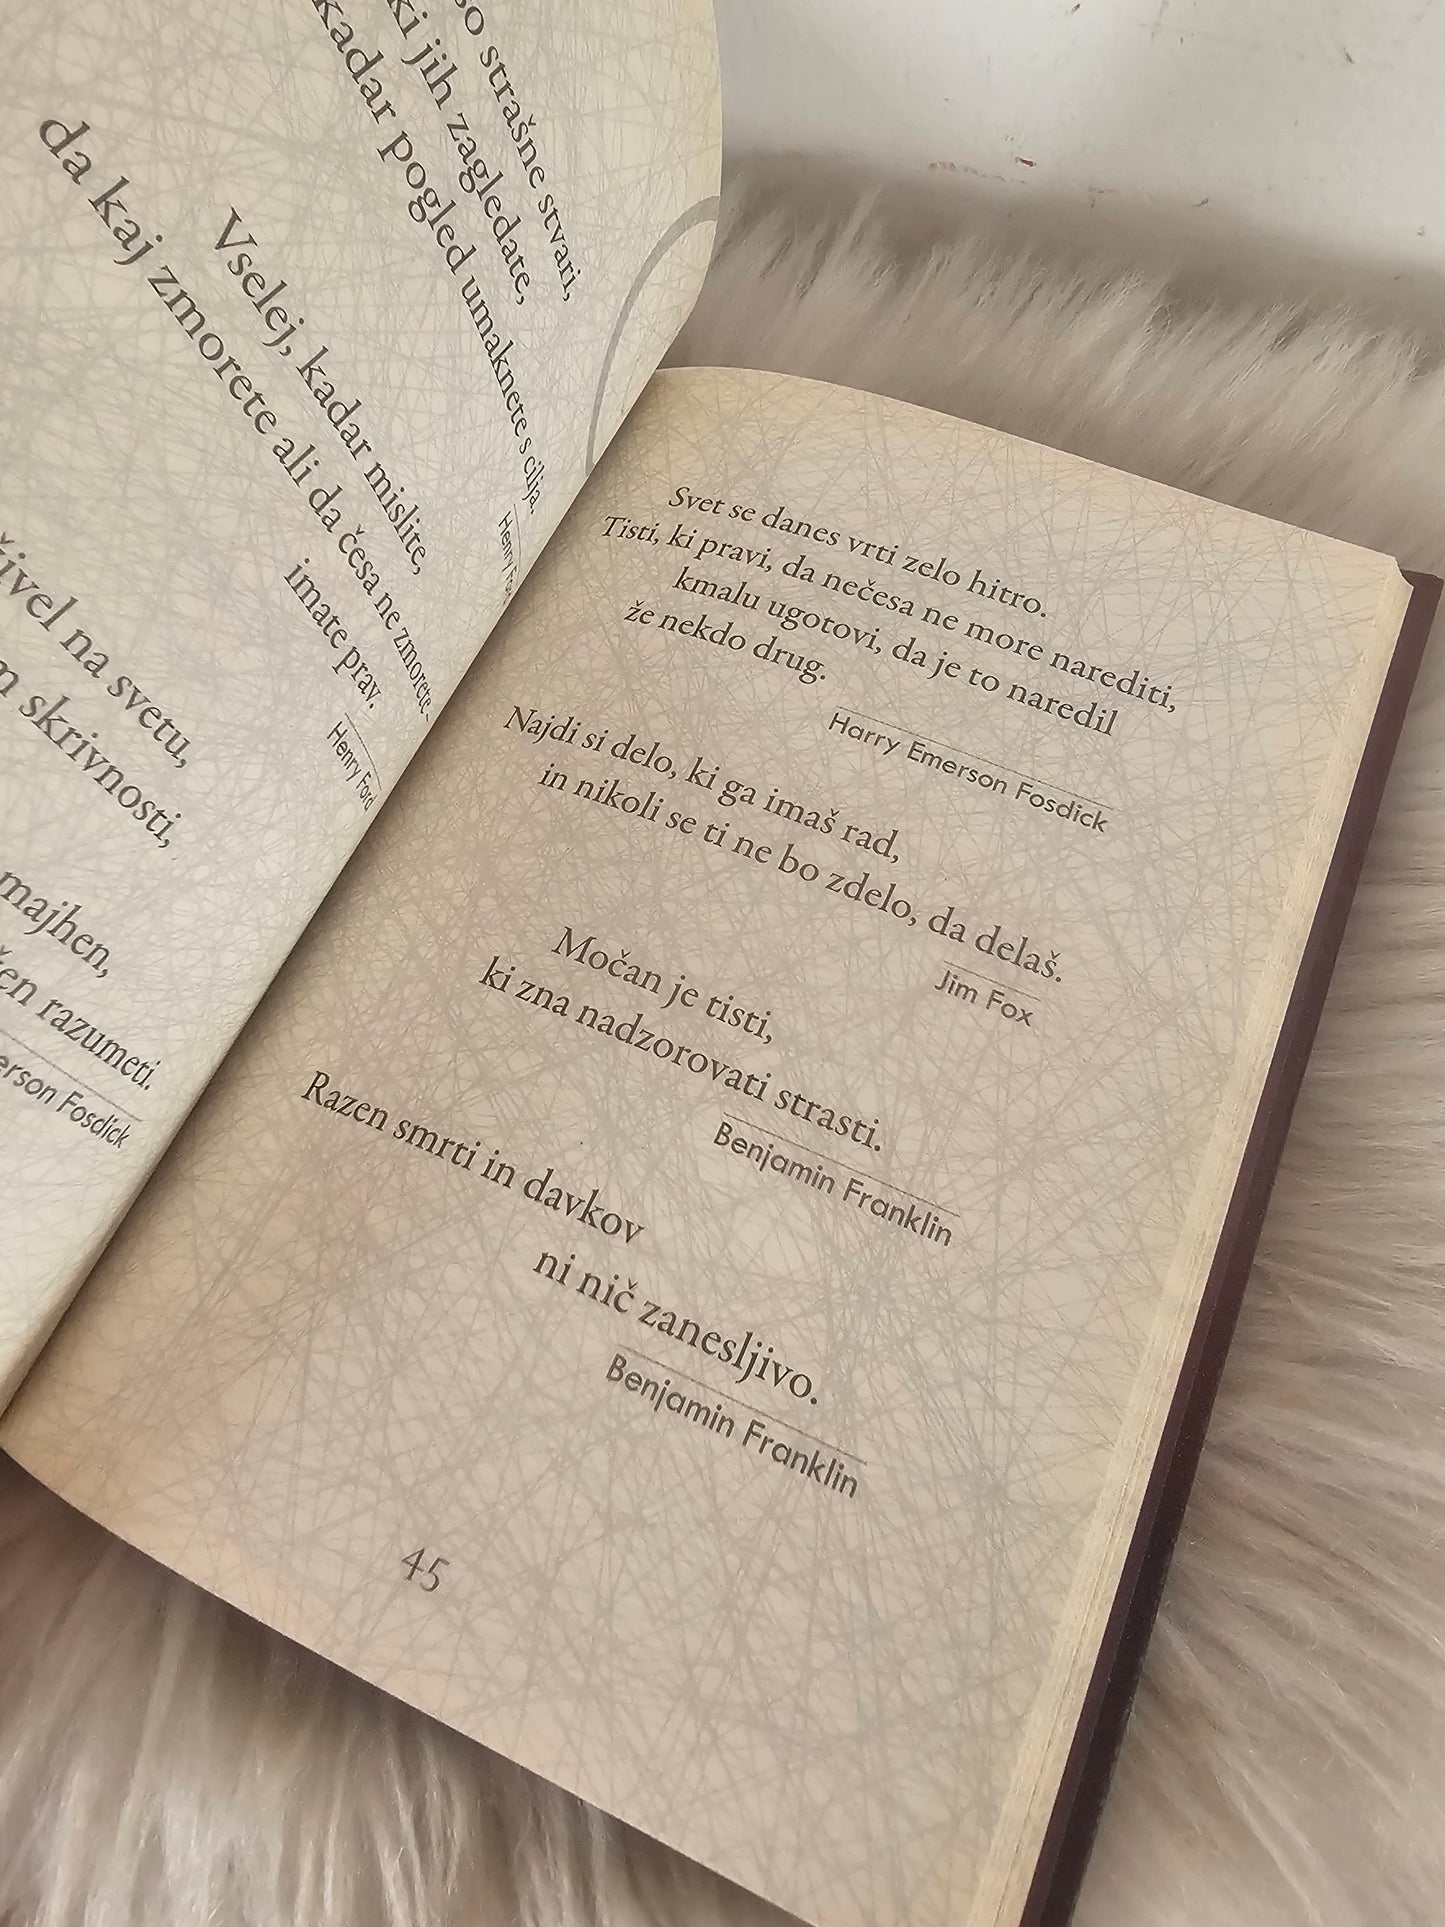 so strašne stvari,
ki jih zagledate,
kadar pogled umaknete s cilja.
Henry Ford
Vselej, kadar mislite,
da kaj zmorete ali da česa ne zmorete –
imate prav.
Henry Ford
živel na svetu,
skrivnosti,
majhen,
razumeti.
Fosdick
Svet se danes vrti zelo hitro.
Tisti, ki pravi, da nečesa ne more narediti,
kmalu ugotovi, da je to naredil
že nekdo drug.
Harry Emerson Fosdick
Najdi si delo, ki ga imaš rad,
in nikoli se ti ne bo zdelo, da delaš.
Jim Fox
Močan je tisti,
ki zna nadzorovati strasti.
Benjamin Franklin
Razen smrti in davkov
ni nič zanesljivo.
Benjamin Franklin
45